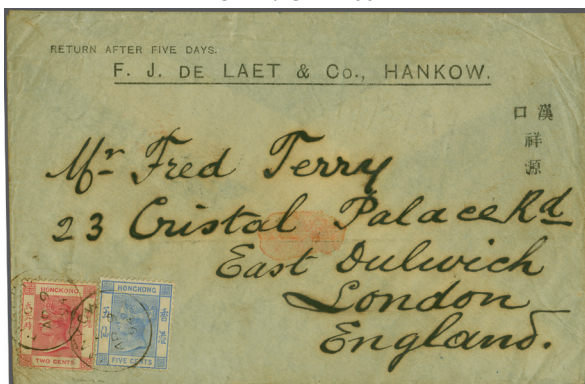 RETURN AFTER FIVE DAYS.
F. J. DE LAET & Co., HANKOW.
漢口
祥源
Mr Fred Terry
23 Cristal Palace Rd
East Dulwich
London
England.
HONG KONG
TWO CENTS
HONG KONG
香港
五仙
FIVE CENTS